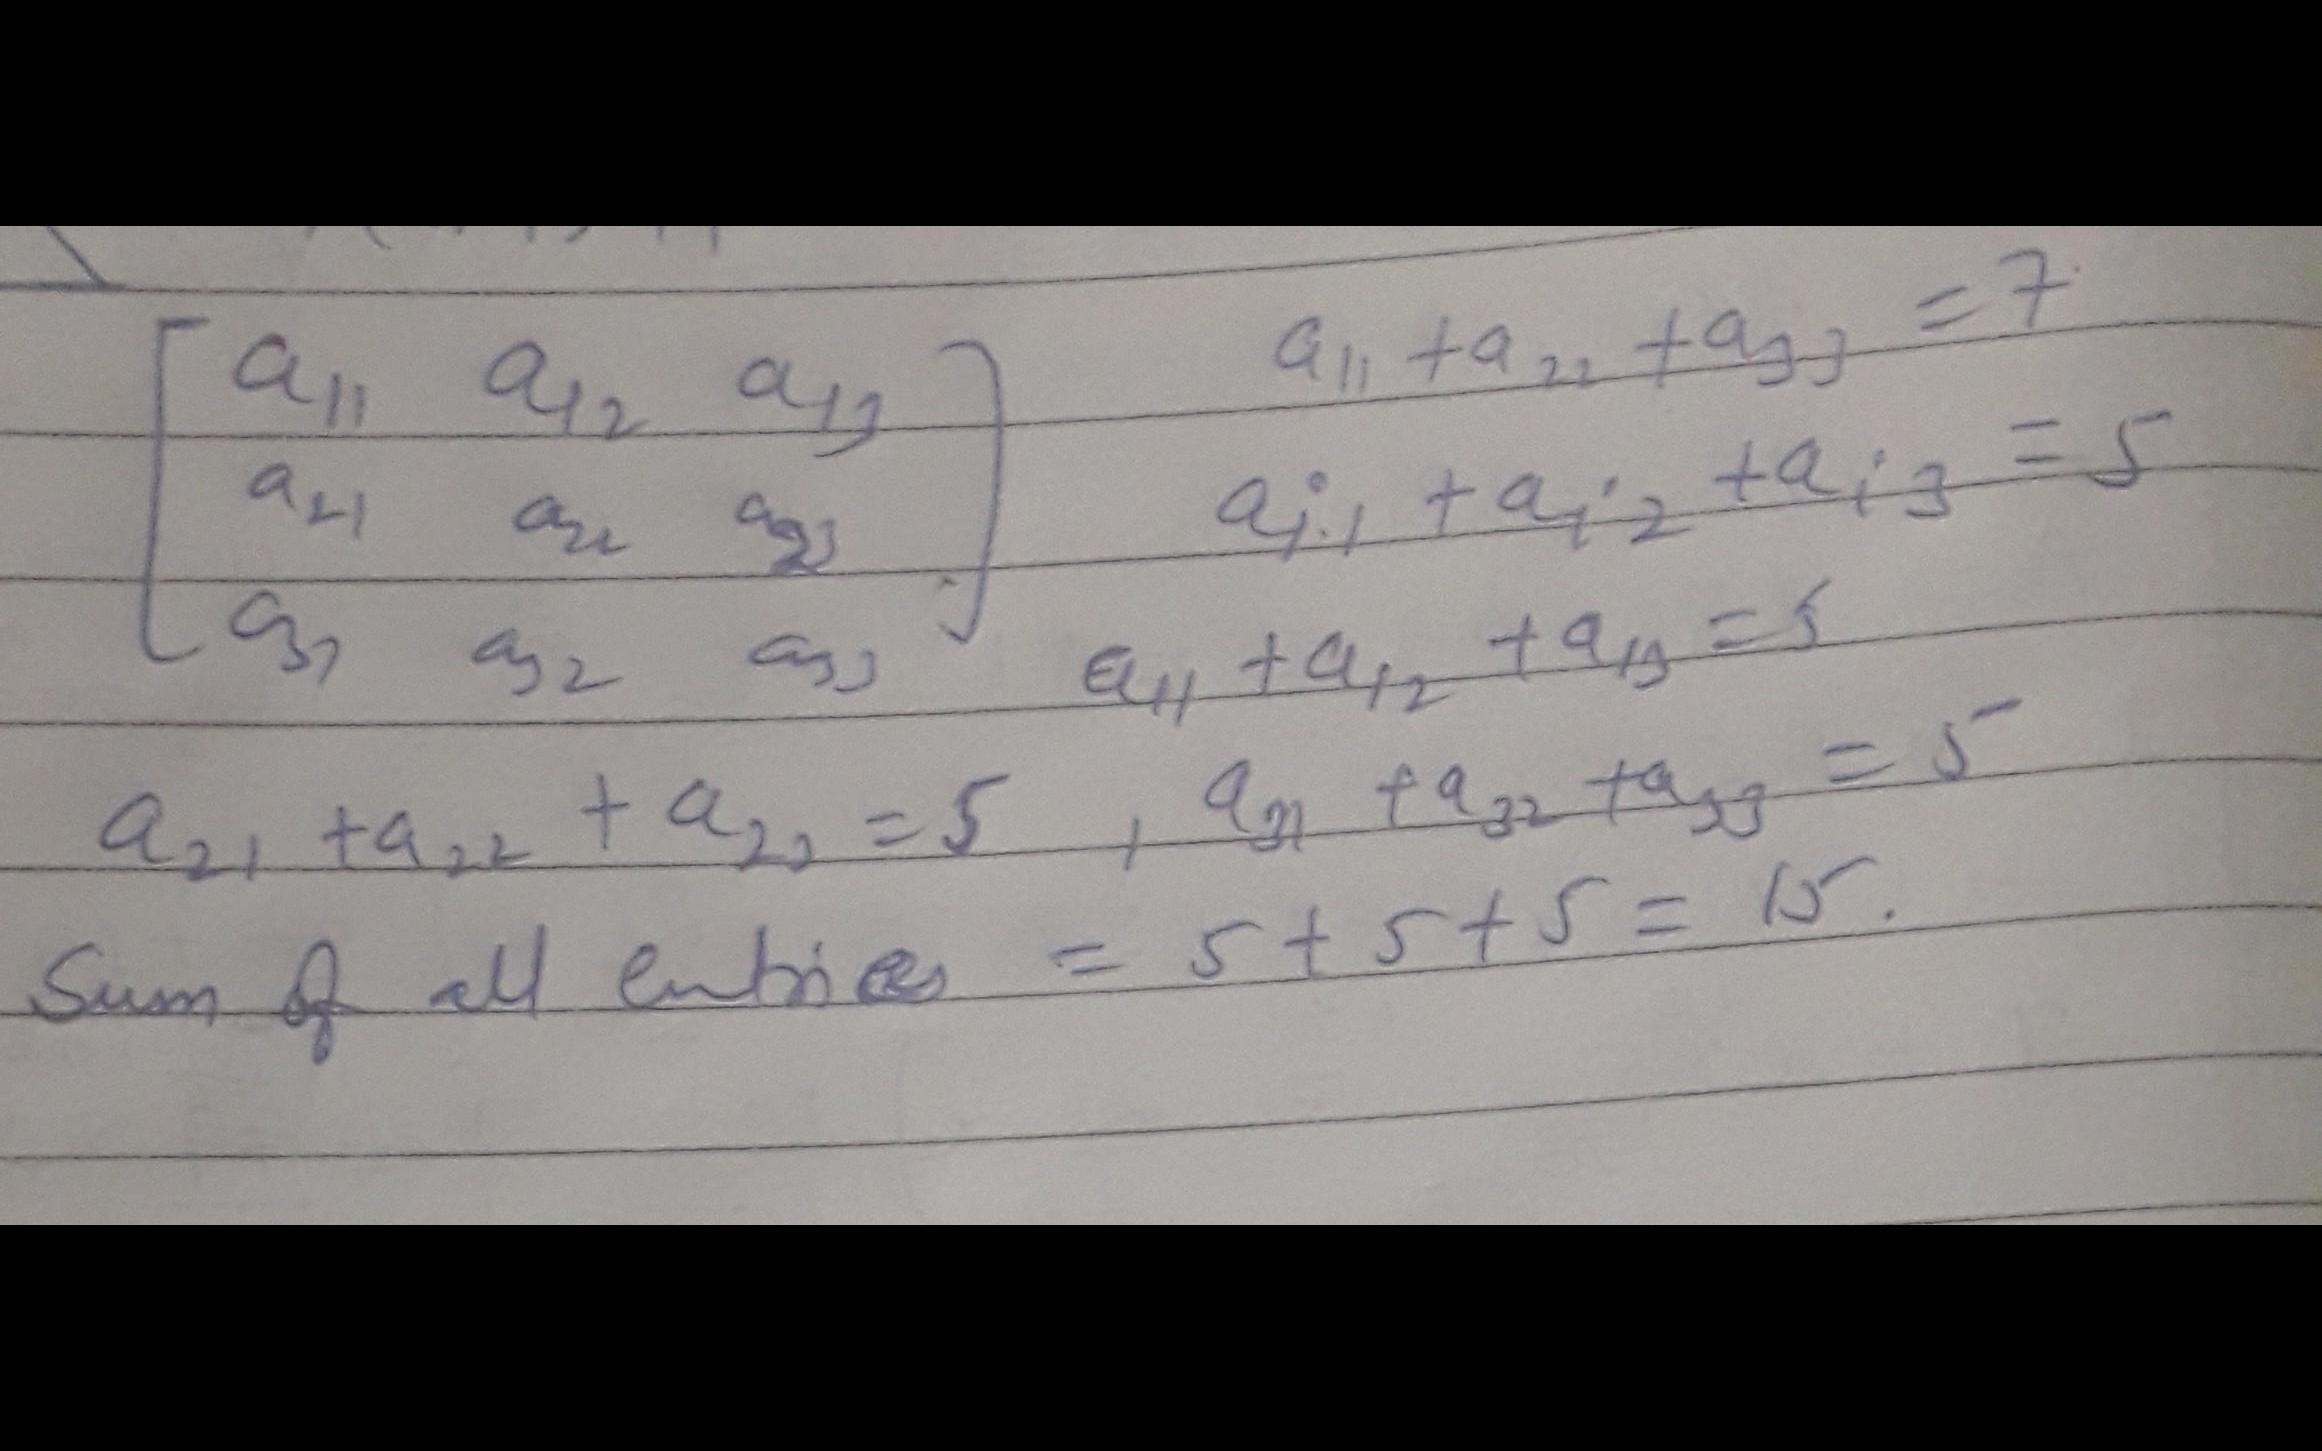 [ a₁₁ a₁₂ a₁₃ ] a₁₁ + a₂₂ + a₃₃ = 7
a₂₁ a₂₂ a₂₃ aᵢ₁ + aᵢ₂ + aᵢ₃ = 5
a₃₁ a₃₂ a₃₃ a₁₁ + a₁₂ + a₁₃ = 5
a₂₁ + a₂₂ + a₂₃ = 5 , a₃₁ + a₃₂ + a₃₃ = 5
Sum of all entries = 5 + 5 + 5 = 15.